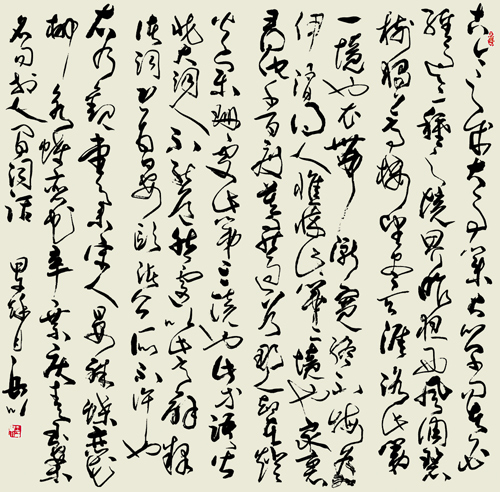 古今之成大事業大學問者必
經過三種之境界昨夜西風凋碧
樹獨上高樓望盡天涯路此第
一境也衣帶漸寬終不悔為
伊消得人憔悴此第二境也眾裏
尋他千百度驀然回首那人却在燈
火闌珊處此第三境也此等語皆
非大詞人不能道然遽以此意解釋
諸詞恐為晏歐諸公所不許也
右乃觀堂集宋人晏殊蝶戀花
柳永蝶戀花辛棄疾青玉案
名句於人間詞話